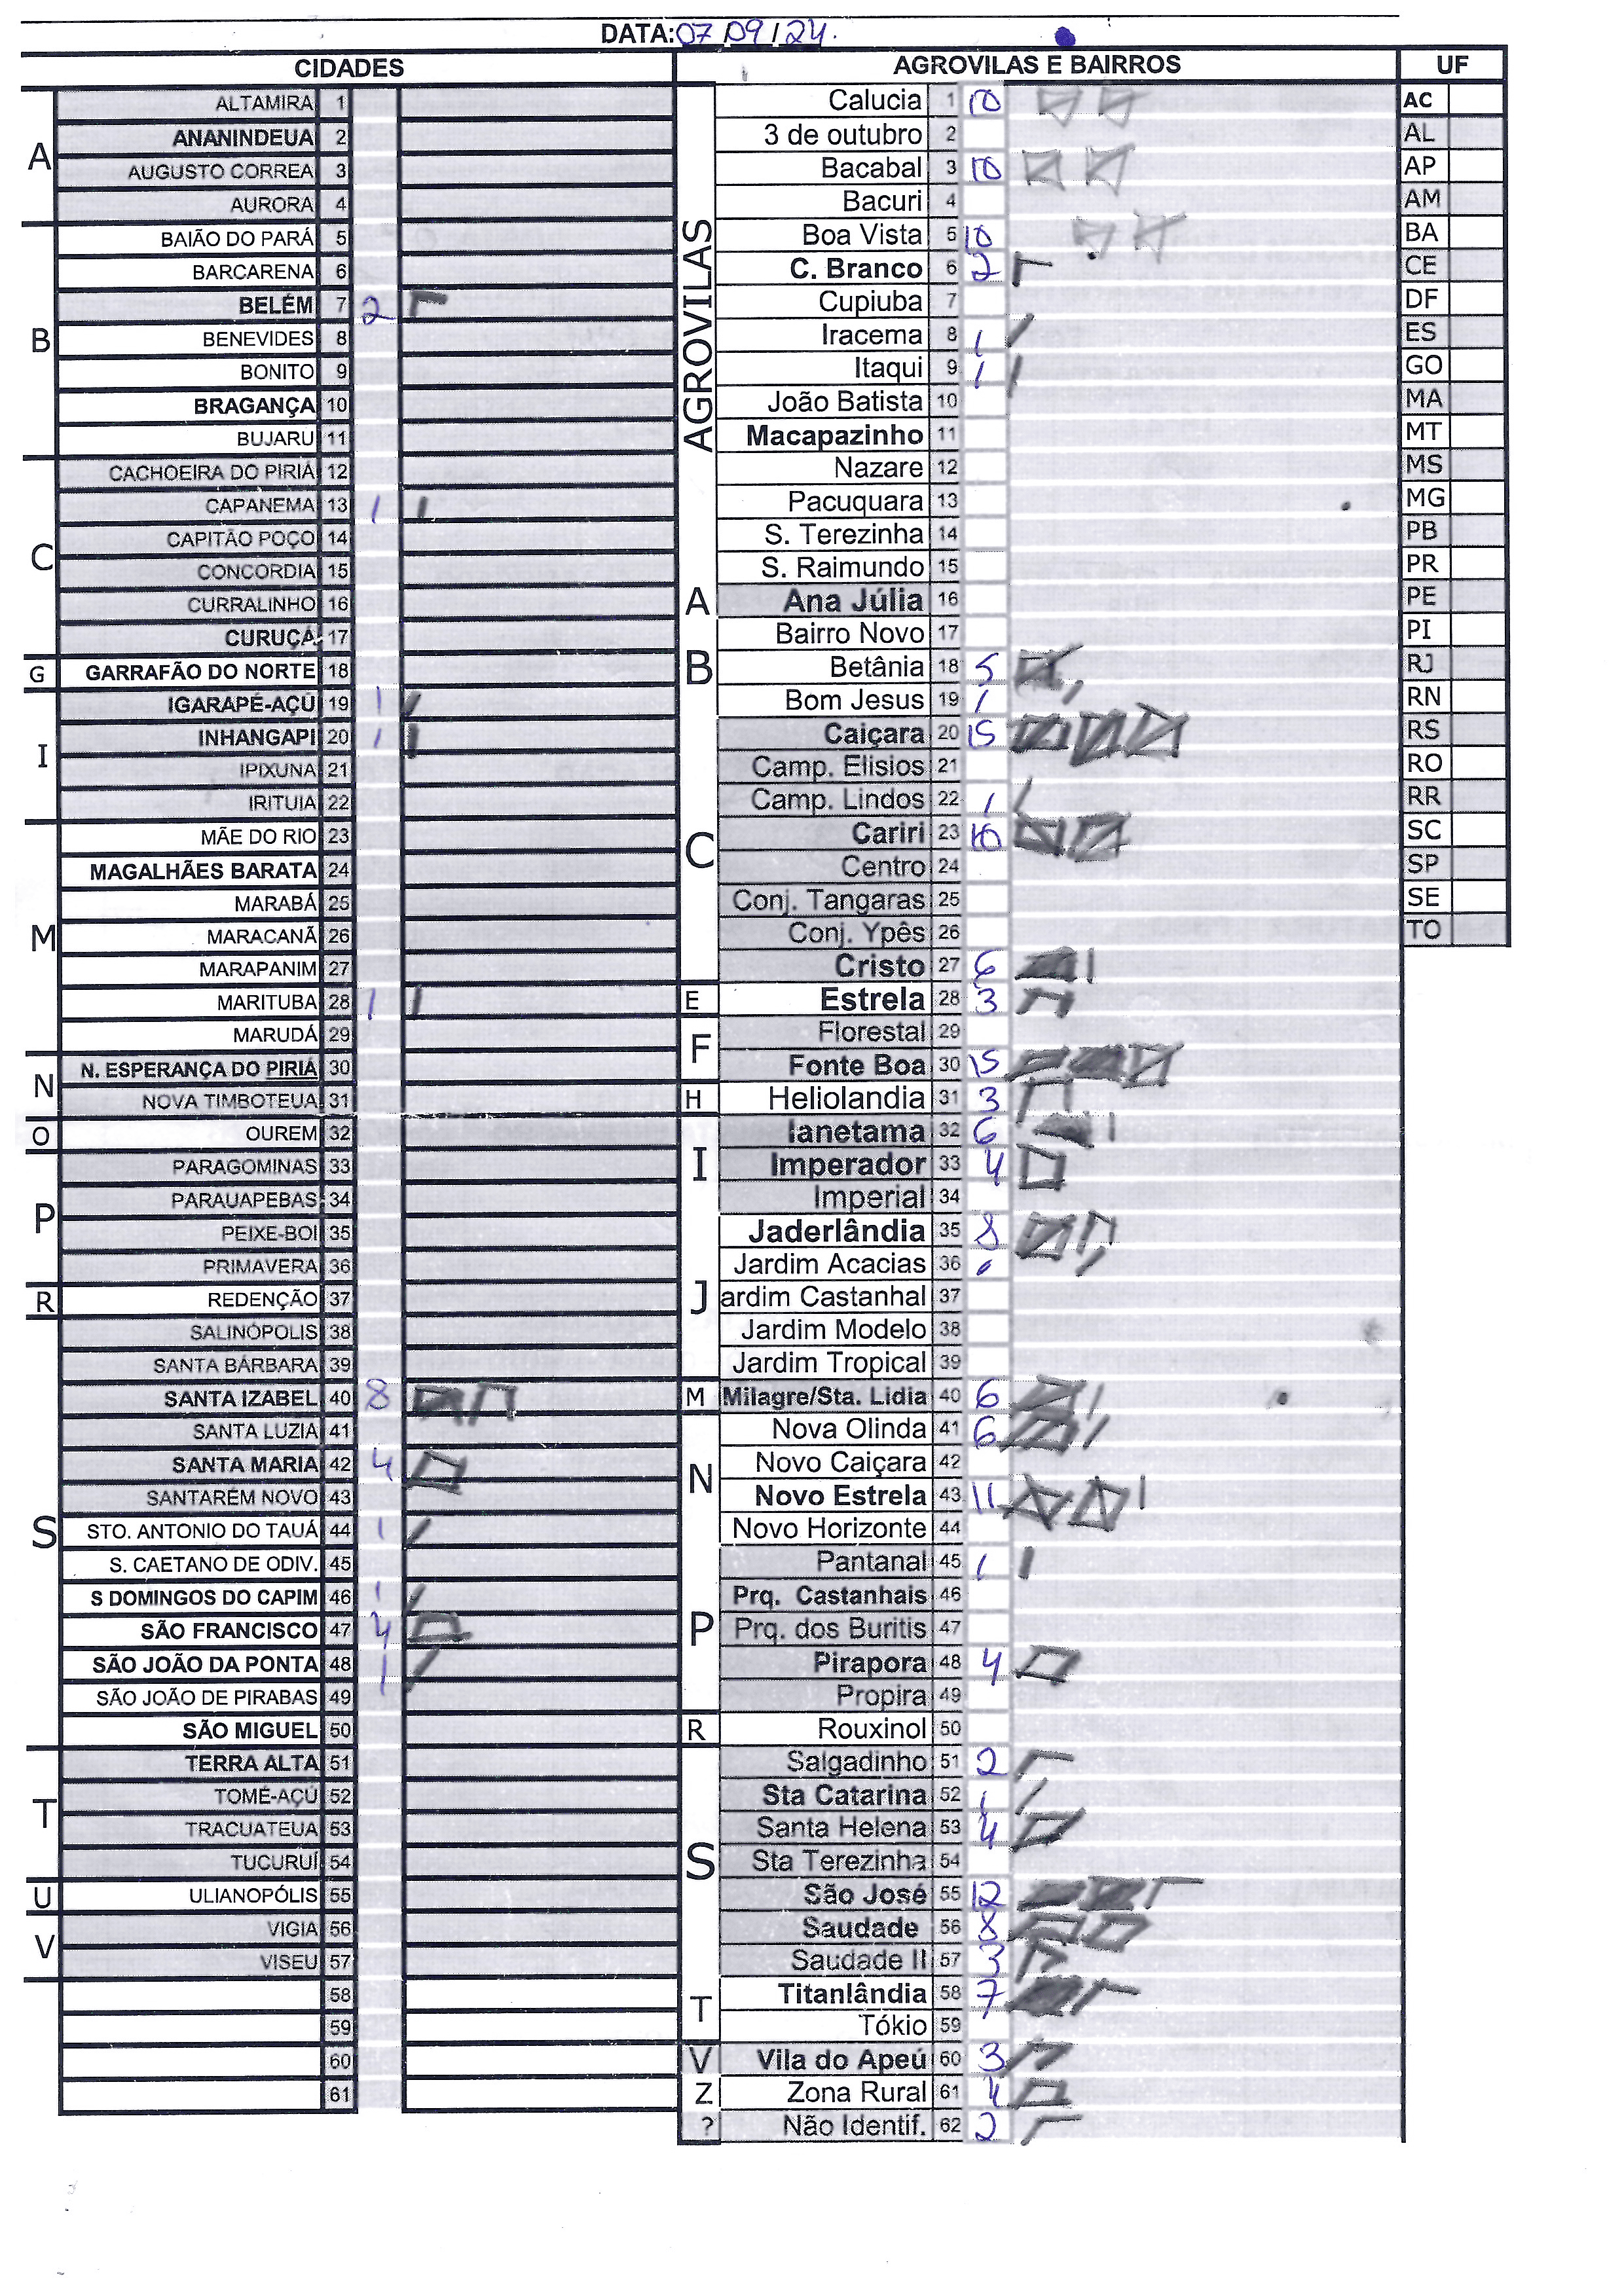 DATA: 07/09/24.
CIDADES
A
ALTAMIRA 1
ANANINDEUA 2
AUGUSTO CORREA 3
AURORA 4
B
BAIÃO DO PARÁ 5
BARCARENA 6
BELÉM 7 2
BENEVIDES 8
BONITO 9
BRAGANÇA 10
BUJARU 11
C
CACHOEIRA DO PIRIÁ 12
CAPANEMA 13 1
CAPITÃO POÇO 14
CONCORDIA 15
CURRALINHO 16
CURUÇÁ 17
G
GARRAFÃO DO NORTE 18
I
IGARAPÉ-AÇÚ 19 1
INHANGAPI 20 1
IPIXUNA 21
IRITUIA 22
M
MÃE DO RIO 23
MAGALHÃES BARATA 24
MARABÁ 25
MARACANÃ 26
MARAPANIM 27
MARITUBA 28 1
MARUDÁ 29
N
N. ESPERANÇA DO PIRIÁ 30
NOVA TIMBOTEUA 31
O
OUREM 32
P
PARAGOMINAS 33
PARAUAPEBAS 34
PEIXE-BOI 35
PRIMAVERA 36
R
REDENÇÃO 37
S
SALINÓPOLIS 38
SANTA BÁRBARA 39
SANTA IZABEL 40 8
SANTA LUZIA 41
SANTA MARIA 42 4
SANTARÉM NOVO 43
STO. ANTONIO DO TAUÁ 44 1
S. CAETANO DE ODIV. 45
S DOMINGOS DO CAPIM 46 1
SÃO FRANCISCO 47 4
SÃO JOÃO DA PONTA 48 1
SÃO JOÃO DE PIRABAS 49
SÃO MIGUEL 50
T
TERRA ALTA 51
TOMÉ-AÇÚ 52
TRACUATEUA 53
TUCURUÍ 54
U
ULIANOPÓLIS 55
V
VIGIA 56
VISEU 57
58
59
60
61
AGROVILAS E BAIRROS
AGROVILAS
Calucia 1 10
3 de outubro 2
Bacabal 3 10
Bacuri 4
Boa Vista 5 10
C. Branco 6 2
Cupiuba 7
Iracema 8 1
Itaqui 9 1
João Batista 10
Macapazinho 11
Nazare 12
Pacuquara 13
S. Terezinha 14
S. Raimundo 15
A
Ana Júlia 16
B
Bairro Novo 17
Betânia 18 5
Bom Jesus 19 1
C
Caiçara 20 15
Camp. Elisios 21
Camp. Lindos 22 1
Cariri 23 10
Centro 24
Conj. Tangaras 25
Conj. Ypês 26
Cristo 27 6
E
Estrela 28 3
F
Florestal 29
Fonte Boa 30 15
H
Heliolandia 31 3
I
Ianetama 32 6
Imperador 33 4
Imperial 34
J
Jaderlândia 35 8
Jardim Acacias 36
ardim Castanhal 37
Jardim Modelo 38
Jardim Tropical 39
M
Milagre/Sta. Lidia 40 6
N
Nova Olinda 41 6
Novo Caiçara 42
Novo Estrela 43 11
Novo Horizonte 44
P
Pantanal 45 1
Prq. Castanhais 46
Prq. dos Buritis 47
Pirapora 48 4
Propira 49
R
Rouxinol 50
S
Salgadinho 51 2
Sta Catarina 52 1
Santa Helena 53 4
Sta Terezinha 54
São José 55 12
Saudade 56 8
Saudade II 57 3
T
Titanlândia 58 7
Tókio 59
V
Vila do Apeú 60 3
Z
Zona Rural 61 4
?
Não Identif. 62 2
UF
AC
AL
AP
AM
BA
CE
DF
ES
GO
MA
MT
MS
MG
PB
PR
PE
PI
RJ
RN
RS
RO
RR
SC
SP
SE
TO